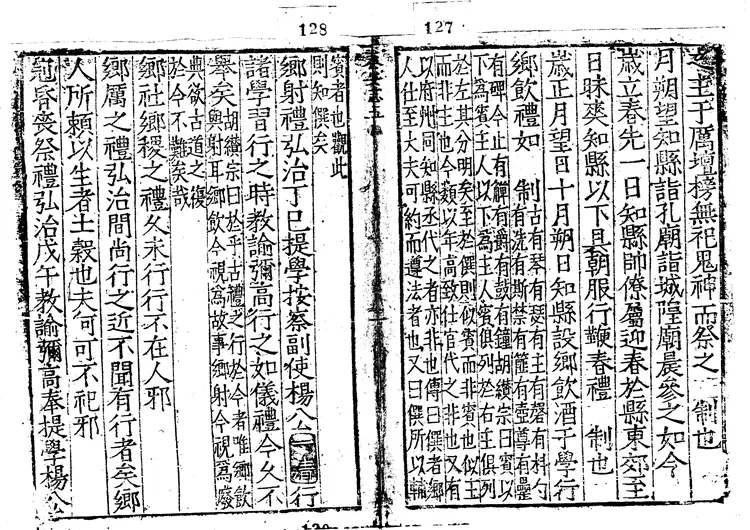 128
127
之主于厲壇榜無祀鬼神而祭之 制也
月朔望知縣詣孔廟詣城隍廟晨參之如令
歲立春先一日知縣帥僚屬迎春於縣東郊至
日昧爽知縣以下具朝服行鞭春禮 制也
歲正月望日十月朔日知縣設鄉飲酒于學行
鄉飲禮如 制古有琴有瑟有主有磬有枓勺
有洗有斯禁有篚有壺尊有罍
有碑今止有觶有爵有鼓有鐘胡纘宗曰賓以
下為賓主人以下為主人賓俱列於右主俱列
於左其分明矣至於僎則似賓而非賓也似主
而非主也今類以年高致仕官代之非也又有
以府州同知縣丞代之者亦非也傳曰僎者鄉
人仕至大夫可約而遵法者也又曰僎所以輔
賓者也觀此
則知僎矣
鄉射禮弘治丁巳提學按察副使楊公一清行
諸學習行之時教諭彌高行之如儀禮今久不
舉矣胡纘宗曰於乎古禮之行於今者唯鄉飲
與射耳鄉飲今視為故事鄉射今視為廢
典欲古道之復
於今不難矣哉
鄉社鄉稷之禮久未行行不在人邪
鄉厲之禮弘治間尚行之近不聞有行者矣鄉
人所賴以生者土穀也夫何可不祀邪
冠昏喪祭禮弘治戊午教諭彌高奉提學楊公